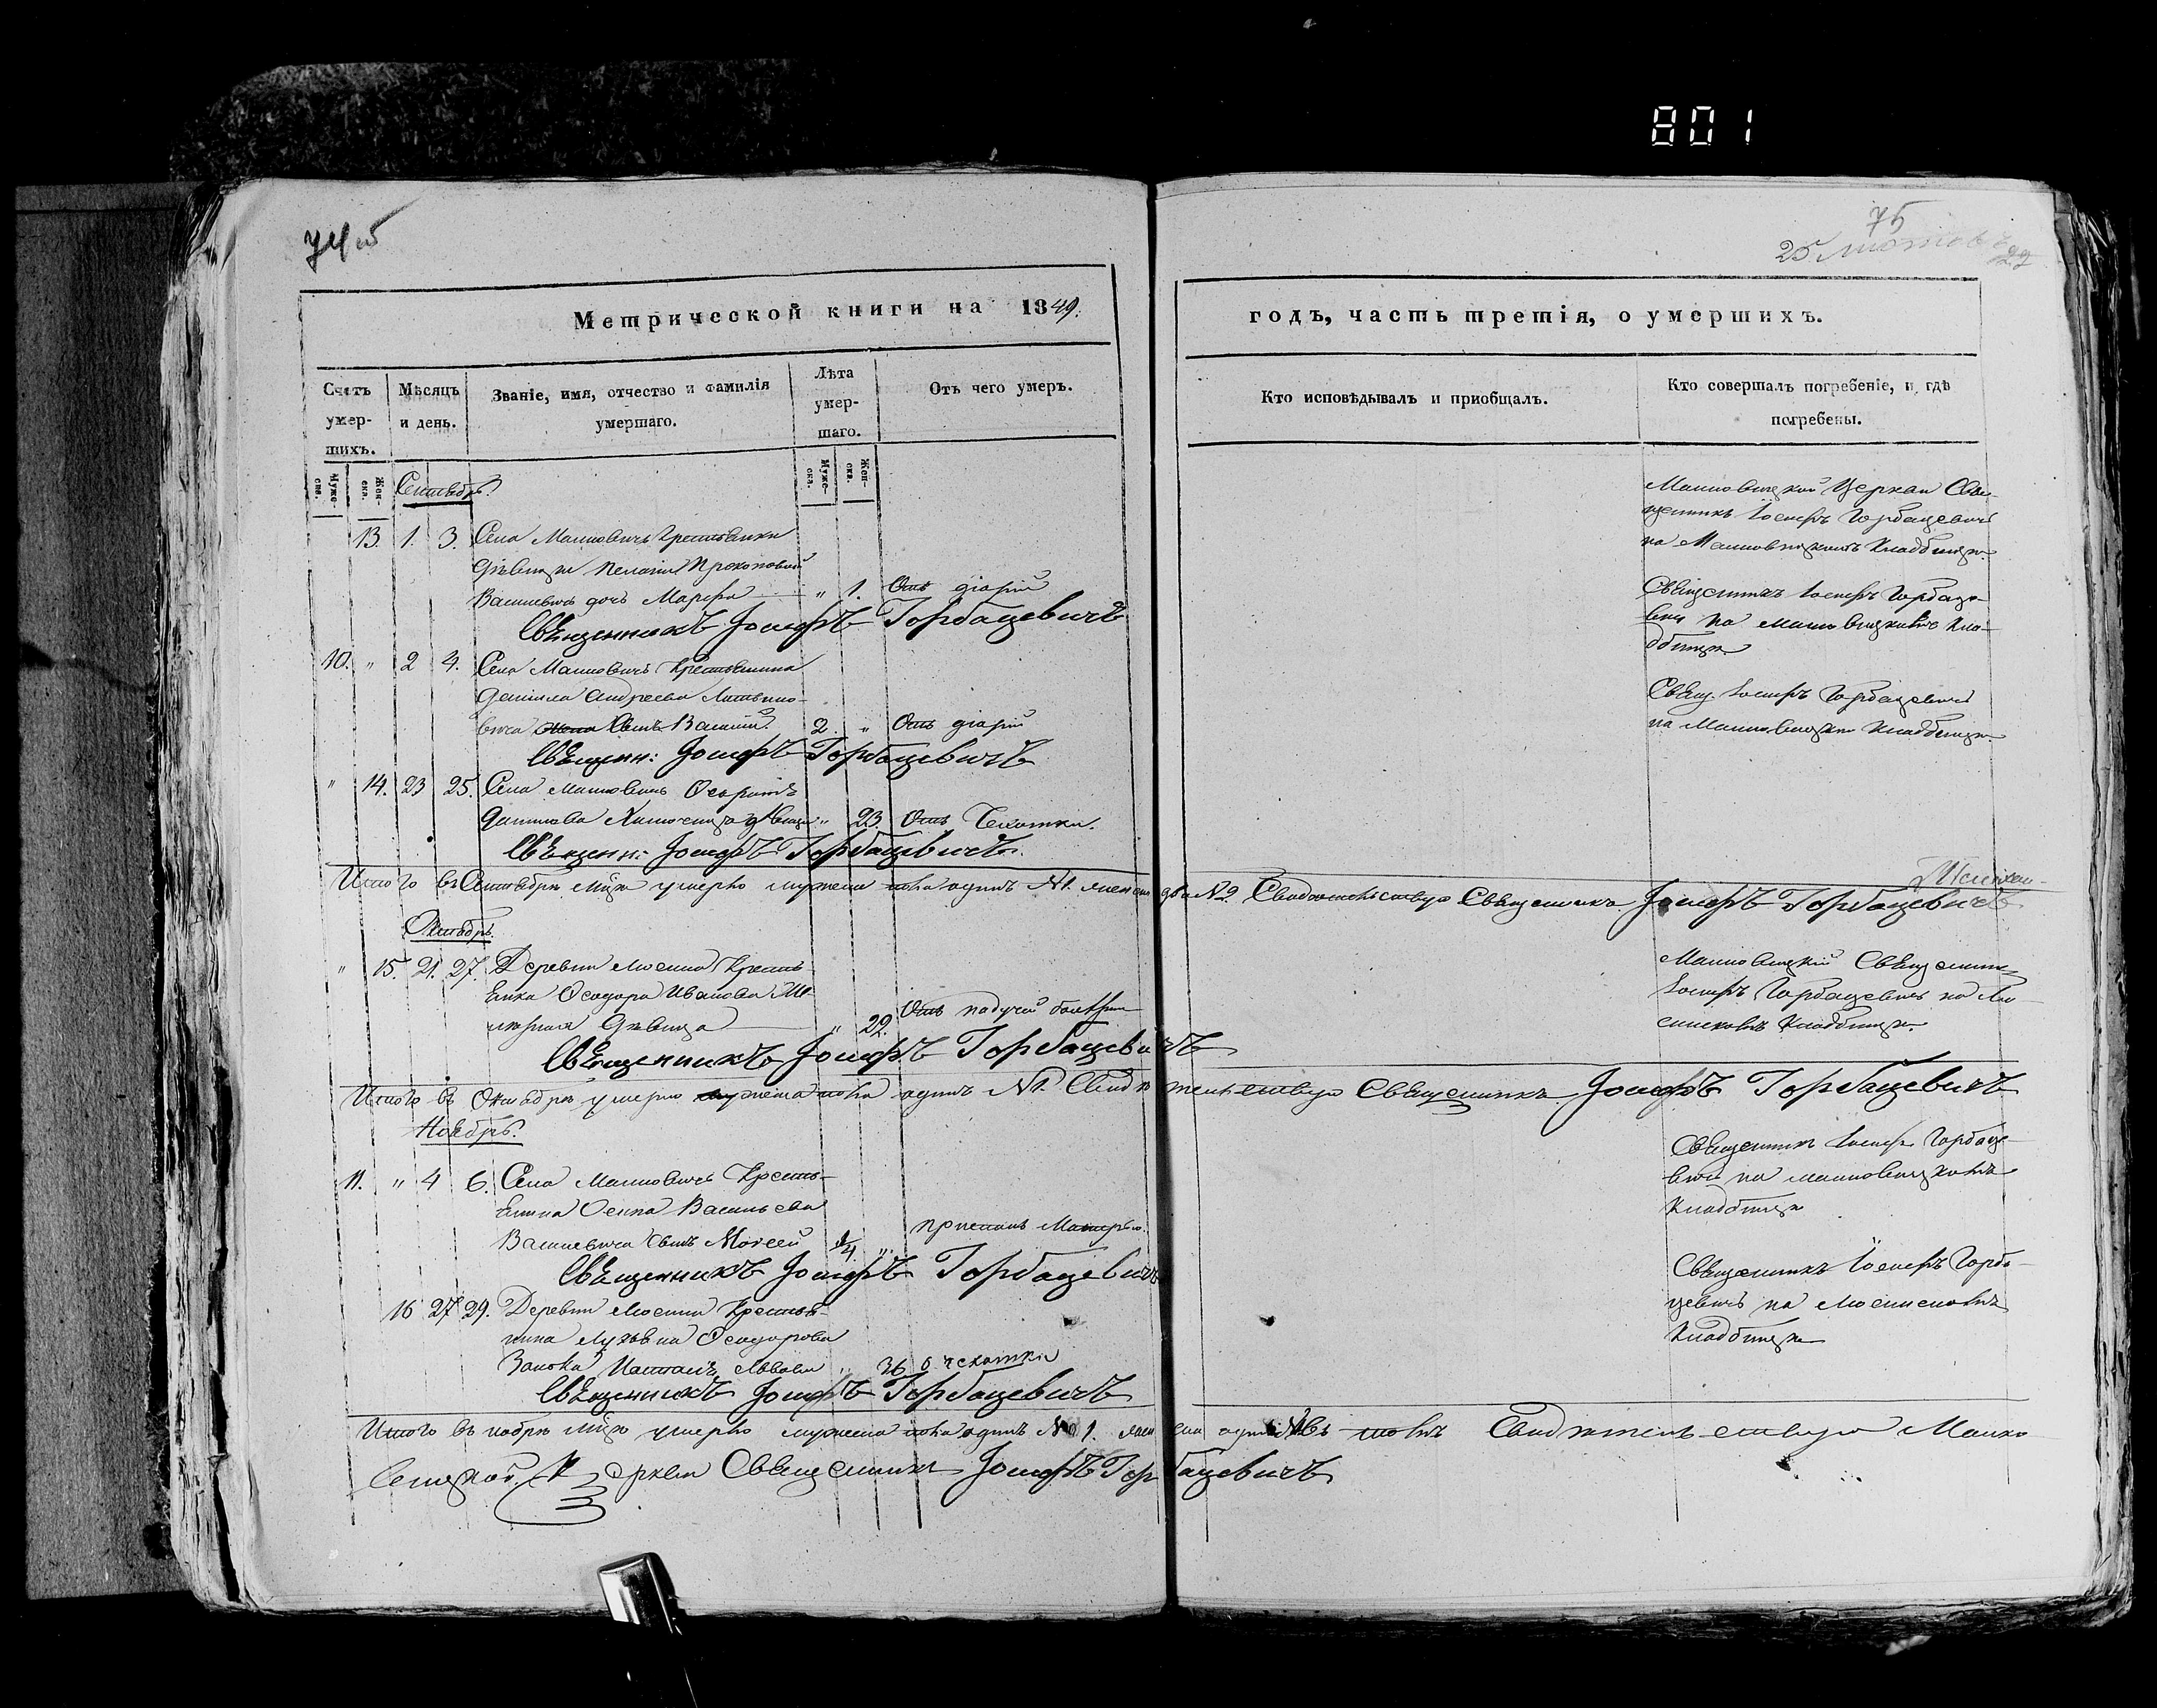 801
75
25
Метрической книги на 1849.
годъ, часть третія, о умершихъ.
Счетъ умер-шихъ.
Мѣсяцъ и день.
Званіе, имя, отчество и фамилія умершаго.
Лѣта умер-шаго.
Отъ чего умеръ.
Кто исповѣдывалъ и приобщалъ.
Кто совершалъ погребеніе, и гдѣ погребены.
Муже-ска.
Жен-ска.
Муже-ска.
Жен-ска.
Сентябрь.
13. 1. 3. Села Малковичь Крестьянки
Дѣвицы Пелагіи Прокоповой
Василевичъ дочь Марфа " 1. Отъ діаріи
Священникъ Іосифъ Горбацевичъ
Церкви Свя-
щенникъ Іосифъ Горбацевичъ
на кладбищѣ
10. " 2 4. Села Малковичь Крестьянина
Данила Андреева
вича Сынъ Василій. 2. " Отъ діаріи
Священн: Іосифъ Горбацевичъ
Священникъ Іосифъ Горбаце-
вичъ на кла-
дбищѣ
" 14. 23 25. Села Малковичь
Данилова дѣвица " 23. Отъ Чахотки.
Священн: Іосифъ Горбацевичъ
Свящ. Іосифъ Горбацевичъ
на кладбищѣ
Итого въ Сентябрѣ м-цѣ умерло мужеска пола одинъ №1. женска два №2. Свидѣтельствую Священникъ Іосифъ Горбацевичъ
Октябрь.
" 15. 21. 27. Деревни Люсина Кресть-
янка Ѳеодора Иванова
Дѣвица " 22. Отъ падучей болѣзни
Священникъ Іосифъ Горбацевичъ
Священникъ
Іосифъ Горбацевичъ на Лю-
синскомъ Кладбищѣ
Итого въ Октябрѣ умерло женска пола одинъ №1. Свидѣтельствую Священникъ Іосифъ Горбацевичъ
Ноябрь.
11. " 4 6. Села Малковичь Кресть-
янина Осипа Васильева
Василевича сынъ Моисей 1/4 " приспанъ Матерью.
Священникъ Іосифъ Горбацевичъ
Священникъ Іосифъ Горбаце-
вичъ на
Кладбищѣ
16 27 29. Деревни Люсина Крестья-
нина Ѳеодорова
" 36 о чехотки
Священникъ Іосифъ Горбацевичъ
Священникъ Іосифъ Горба-
цевичъ на Люсинскомъ
Кладбищѣ
Итого въ ноябрѣ м-цѣ умерло мужеска пола одинъ №1. женска Свидѣтельствую Малко-
вицкой Церкви Священникъ Іосифъ Горбацевичъ